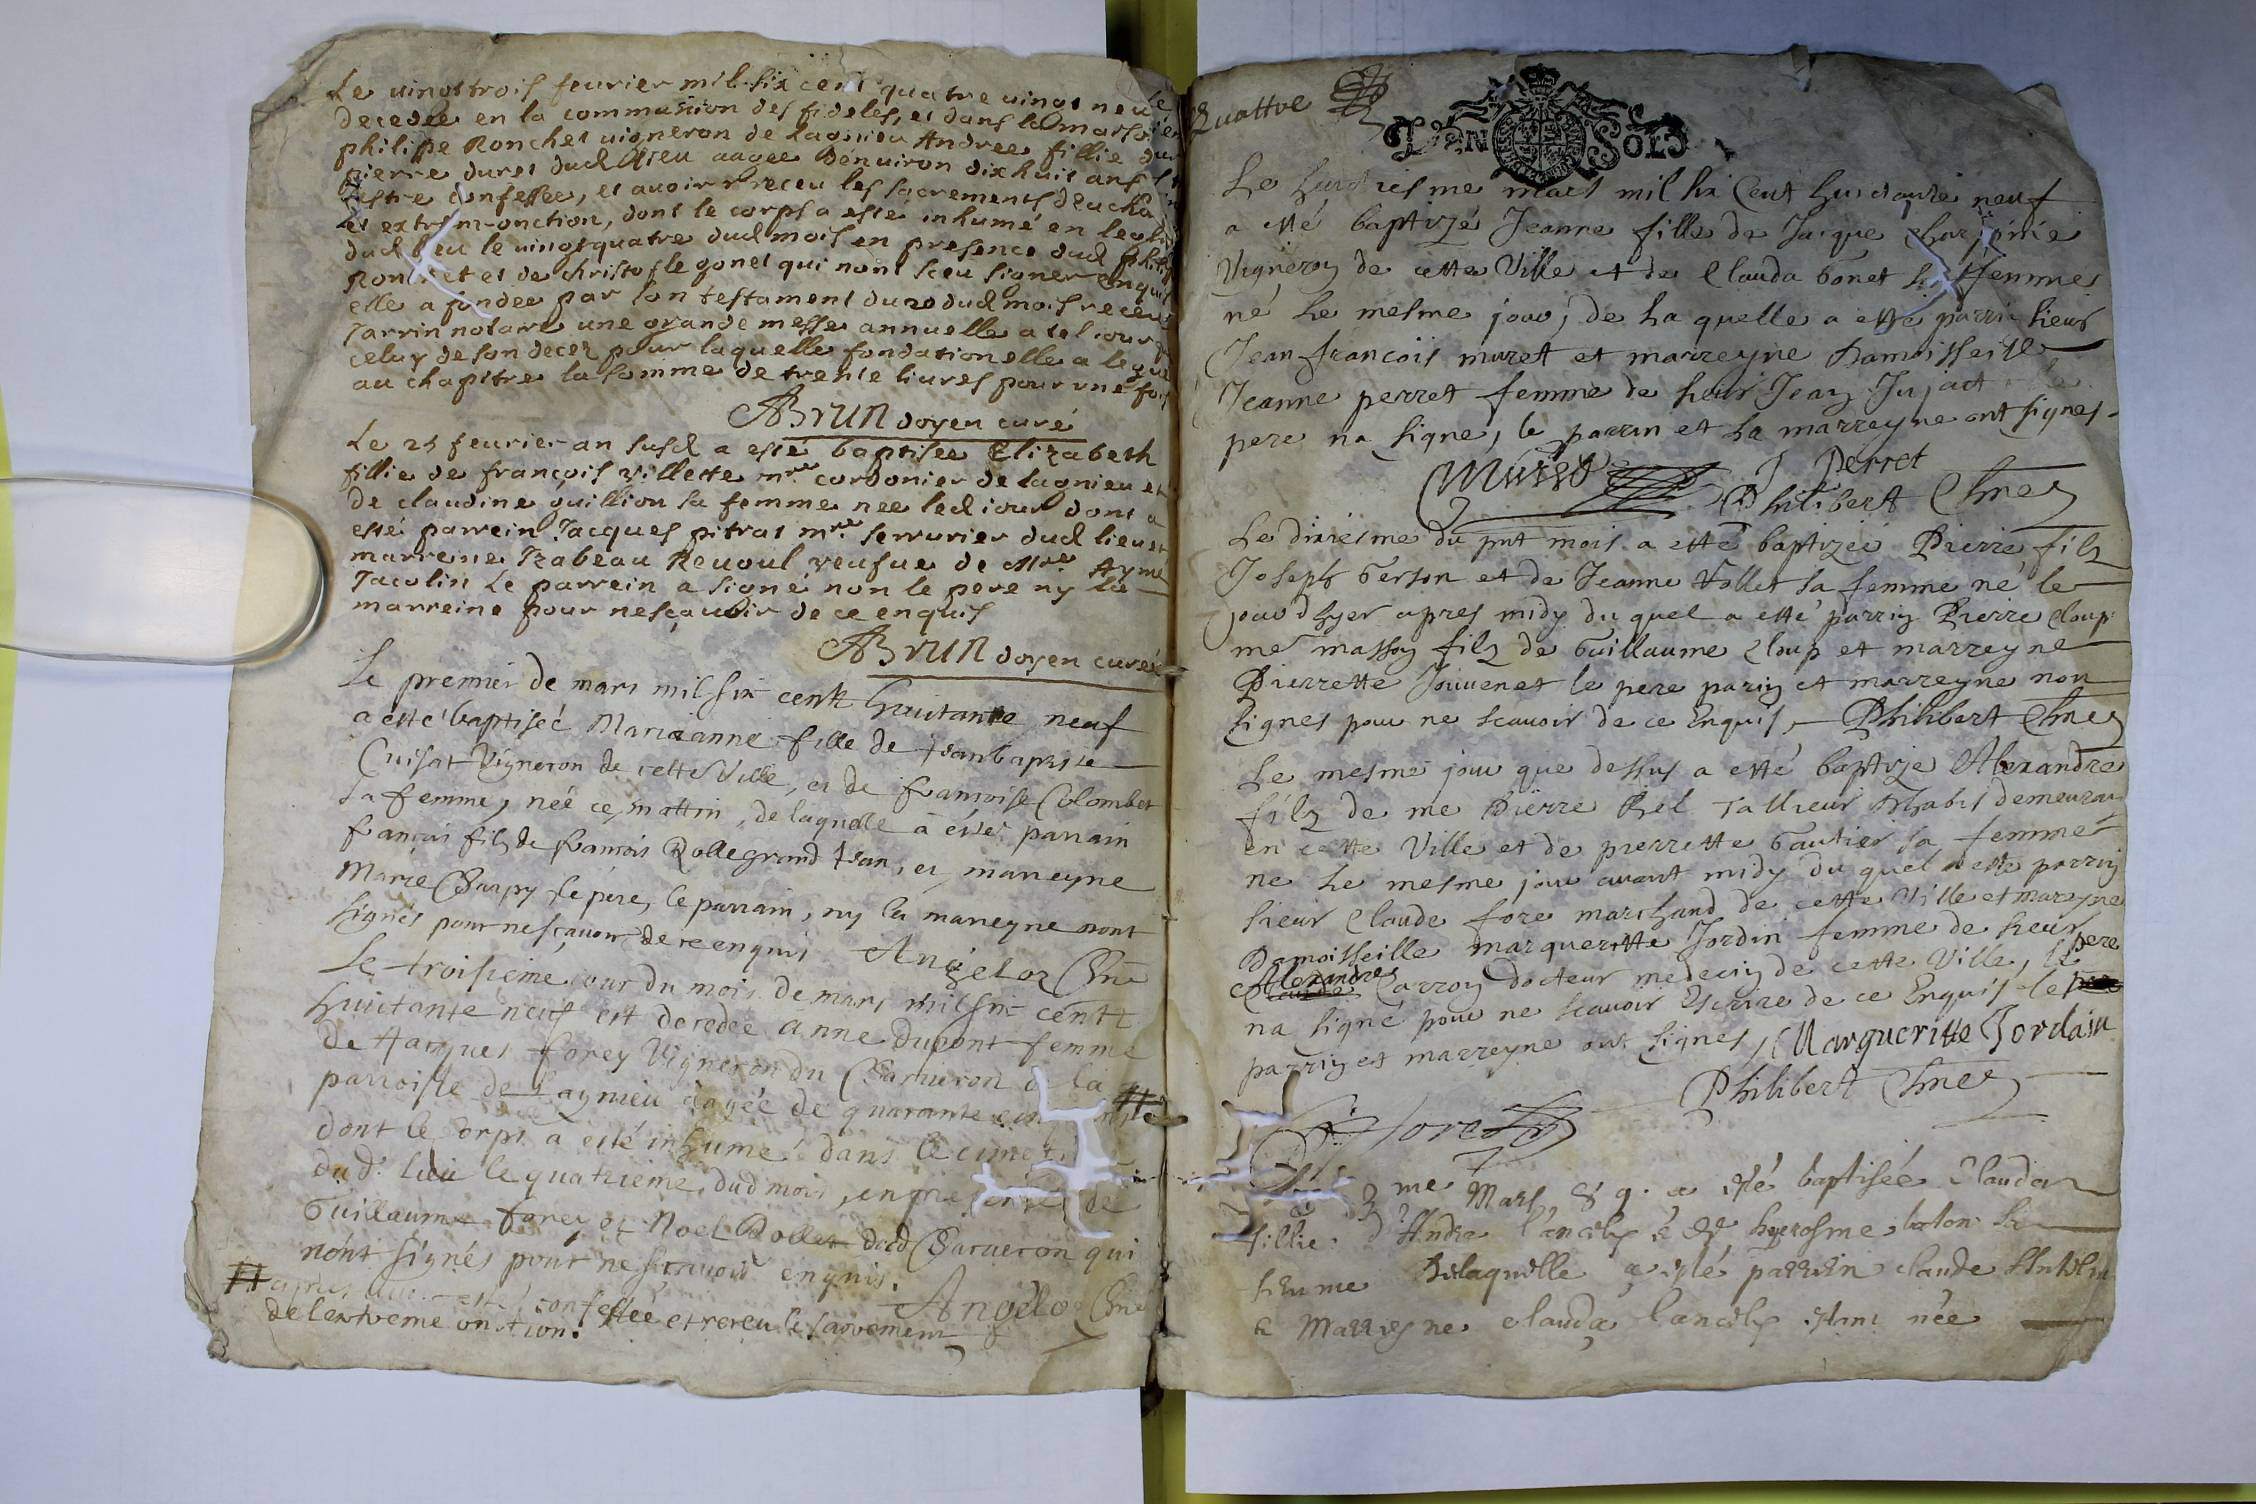 Le vingt trois feurier mil six cent quatre vingt neuf
decedée en la communion des fideles, et dans la maison
philippe Ronchet vigneron de lagnieu Andree fillie
pierre duret dud lieu aagee denuiron dix huit ans
estre confessee, et auoir receu les sacrements
et extremonction, dont le corps a esté inhumé en
dud lieu le vingt quatre dud mois en presence dud
Ronchet et de christofle gonet qui nont sceu signer enquis
elle a fondée par son testament du 20 dud mois receu
Jarrin notaire une grande messe annuelle a tel jour
celuy de son decez pour laquelle fondation elle a legué
au chapitre la somme de trente liures pour une fois
ABrun doyen curé
Le 25 feurier an susd a esté baptisee Elizabeth
fillie de françois villette mre cordonier de lagnieu et
de claudine guillion sa femme nee led iour dont a
esté parrein Jacques pitrat mre serrurier dud lieu et
marreine Izabeau Reuoul veufue de Mre Aymé
Jacolin Le parrein a signé non le pere ny la
marreine pour nesçauoir de ce enquis
ABrun doyen curé
Le premier de mars mil six cent huitante neuf
a esté baptiseé Marieanne fille de Jean baptiste
Cuisat Vigneron de cette Ville, et de françoise Colombet
sa femme, née ce mattin, de laquelle a estée parrain
françois fils de francois Rollegrand Jean, et marreyne
Marie le père, le parrain, ny la marreyne nont
signés pour nesçauoir de ce enquis Angelot
Le troisieme jour du mois de mars mil six cent
huitante neuf est decedée Anne Dupont femme
de Jacques forey Vigneron du Charueron de la
parroisse de Lagnieu aagée de quarante
dont le corps a esté inhumé dans le
dud. lieu le quatrieme dud mois, en presence de
Guillaume forey et Noel Rollet dud Charueron qui
nont signés pour ne sçauoir enquis.
Angelot
confessée et receu le sacrement
de lextreme onction.
Quattre
DEN SOLS
Le huictiesme mars mil six Cent huictante neuf
a esté baptizé Jeanne fille de Jacque
Vigneron de cette Ville et de Clauda bonet sa femme
né le mesme jour, de la quelle a esté parrin sieur
Jean françois muret et marreyne Damoisselle
Jeanne perret femme de sieur Jean Jujat le
pere na signe, le parrin et la marreyne ont signes.
Muret J Perret
Philibert
Le dixiesme du pnt mois a esté baptizéé Pierre filz
Joseph berson et de Jeanne Vollet sa femme né le
jour dhyer apres midy du quel a esté parrin Pierre Cloup
me masson filz de Guillaume Cloup et marreyne
Pierrette Jouvenet le pere parin et marreyne non
signes pour ne scauoir de ce Enquis, Philibert
Le mesme jour que dessus a esté baptize Alexandre
filz de me Pierre Rel Tallieur dhabis demeurant
en cette Ville et de pierrette Gautier sa femme
ne le mesme jour auant midy du quel a esté parrin
sieur Claude fore marchand de cette Ville et mareyne
Damoisseille marqueritte Jordin femme de sieur
Alexandre Carron docteur medecin de cette Ville, le pere
na signé pour ne scauoir Escrire de ce Enquis le
parrin et marreyne ont signes, Margueritte Jordain
Philibert
C fore
me Mars 89. a esté baptisée Clauda
fillie d'Andre & de hyerosme
femme delaquelle a esté parrein claude
& Marresne clauda estant née